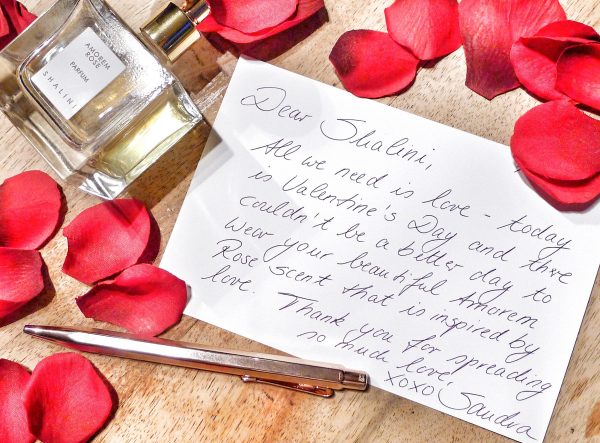 AMOREM
ROSE
PARFUM
SHALINI
Dear Shalini,
All we need is love - today
is Valentine's Day and there
couldn't be a better day to
wear your beautiful Amorem
Rose scent that is inspired by
love. Thank you for spreading
so much love,
xoxo Sandra